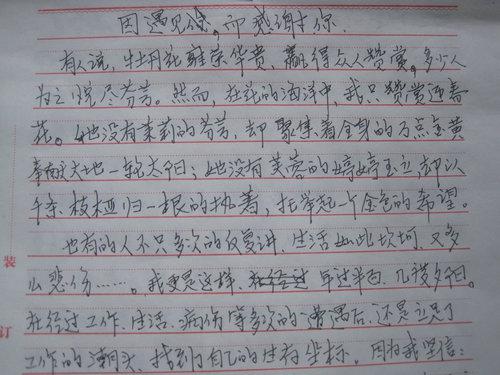 因遇见你,而感谢你.
有人说,牡丹花雍荣华贵、赢得众人赞赏。多少人
为之悦尽芬芳。然而,在花的海洋中,我只赞赏迎春
花。她没有茉莉的芬芳,却聚集着全身的万点金黄
奉献大地一轮太阳;她没有芙蓉的婷婷玉立,却以
千条枝桠归一根的执着,托举起一个金色的希望。
也有的人不只多次的反复讲,生活如此坎坷,又多
么悲伤……。我更是这样,年过半百,几载夕阳。
在经过工作、生活、病伤等多次的遭遇后,还是立足了
工作的潮头,找到了自己的生存坐标。因为我坚信:
装
订